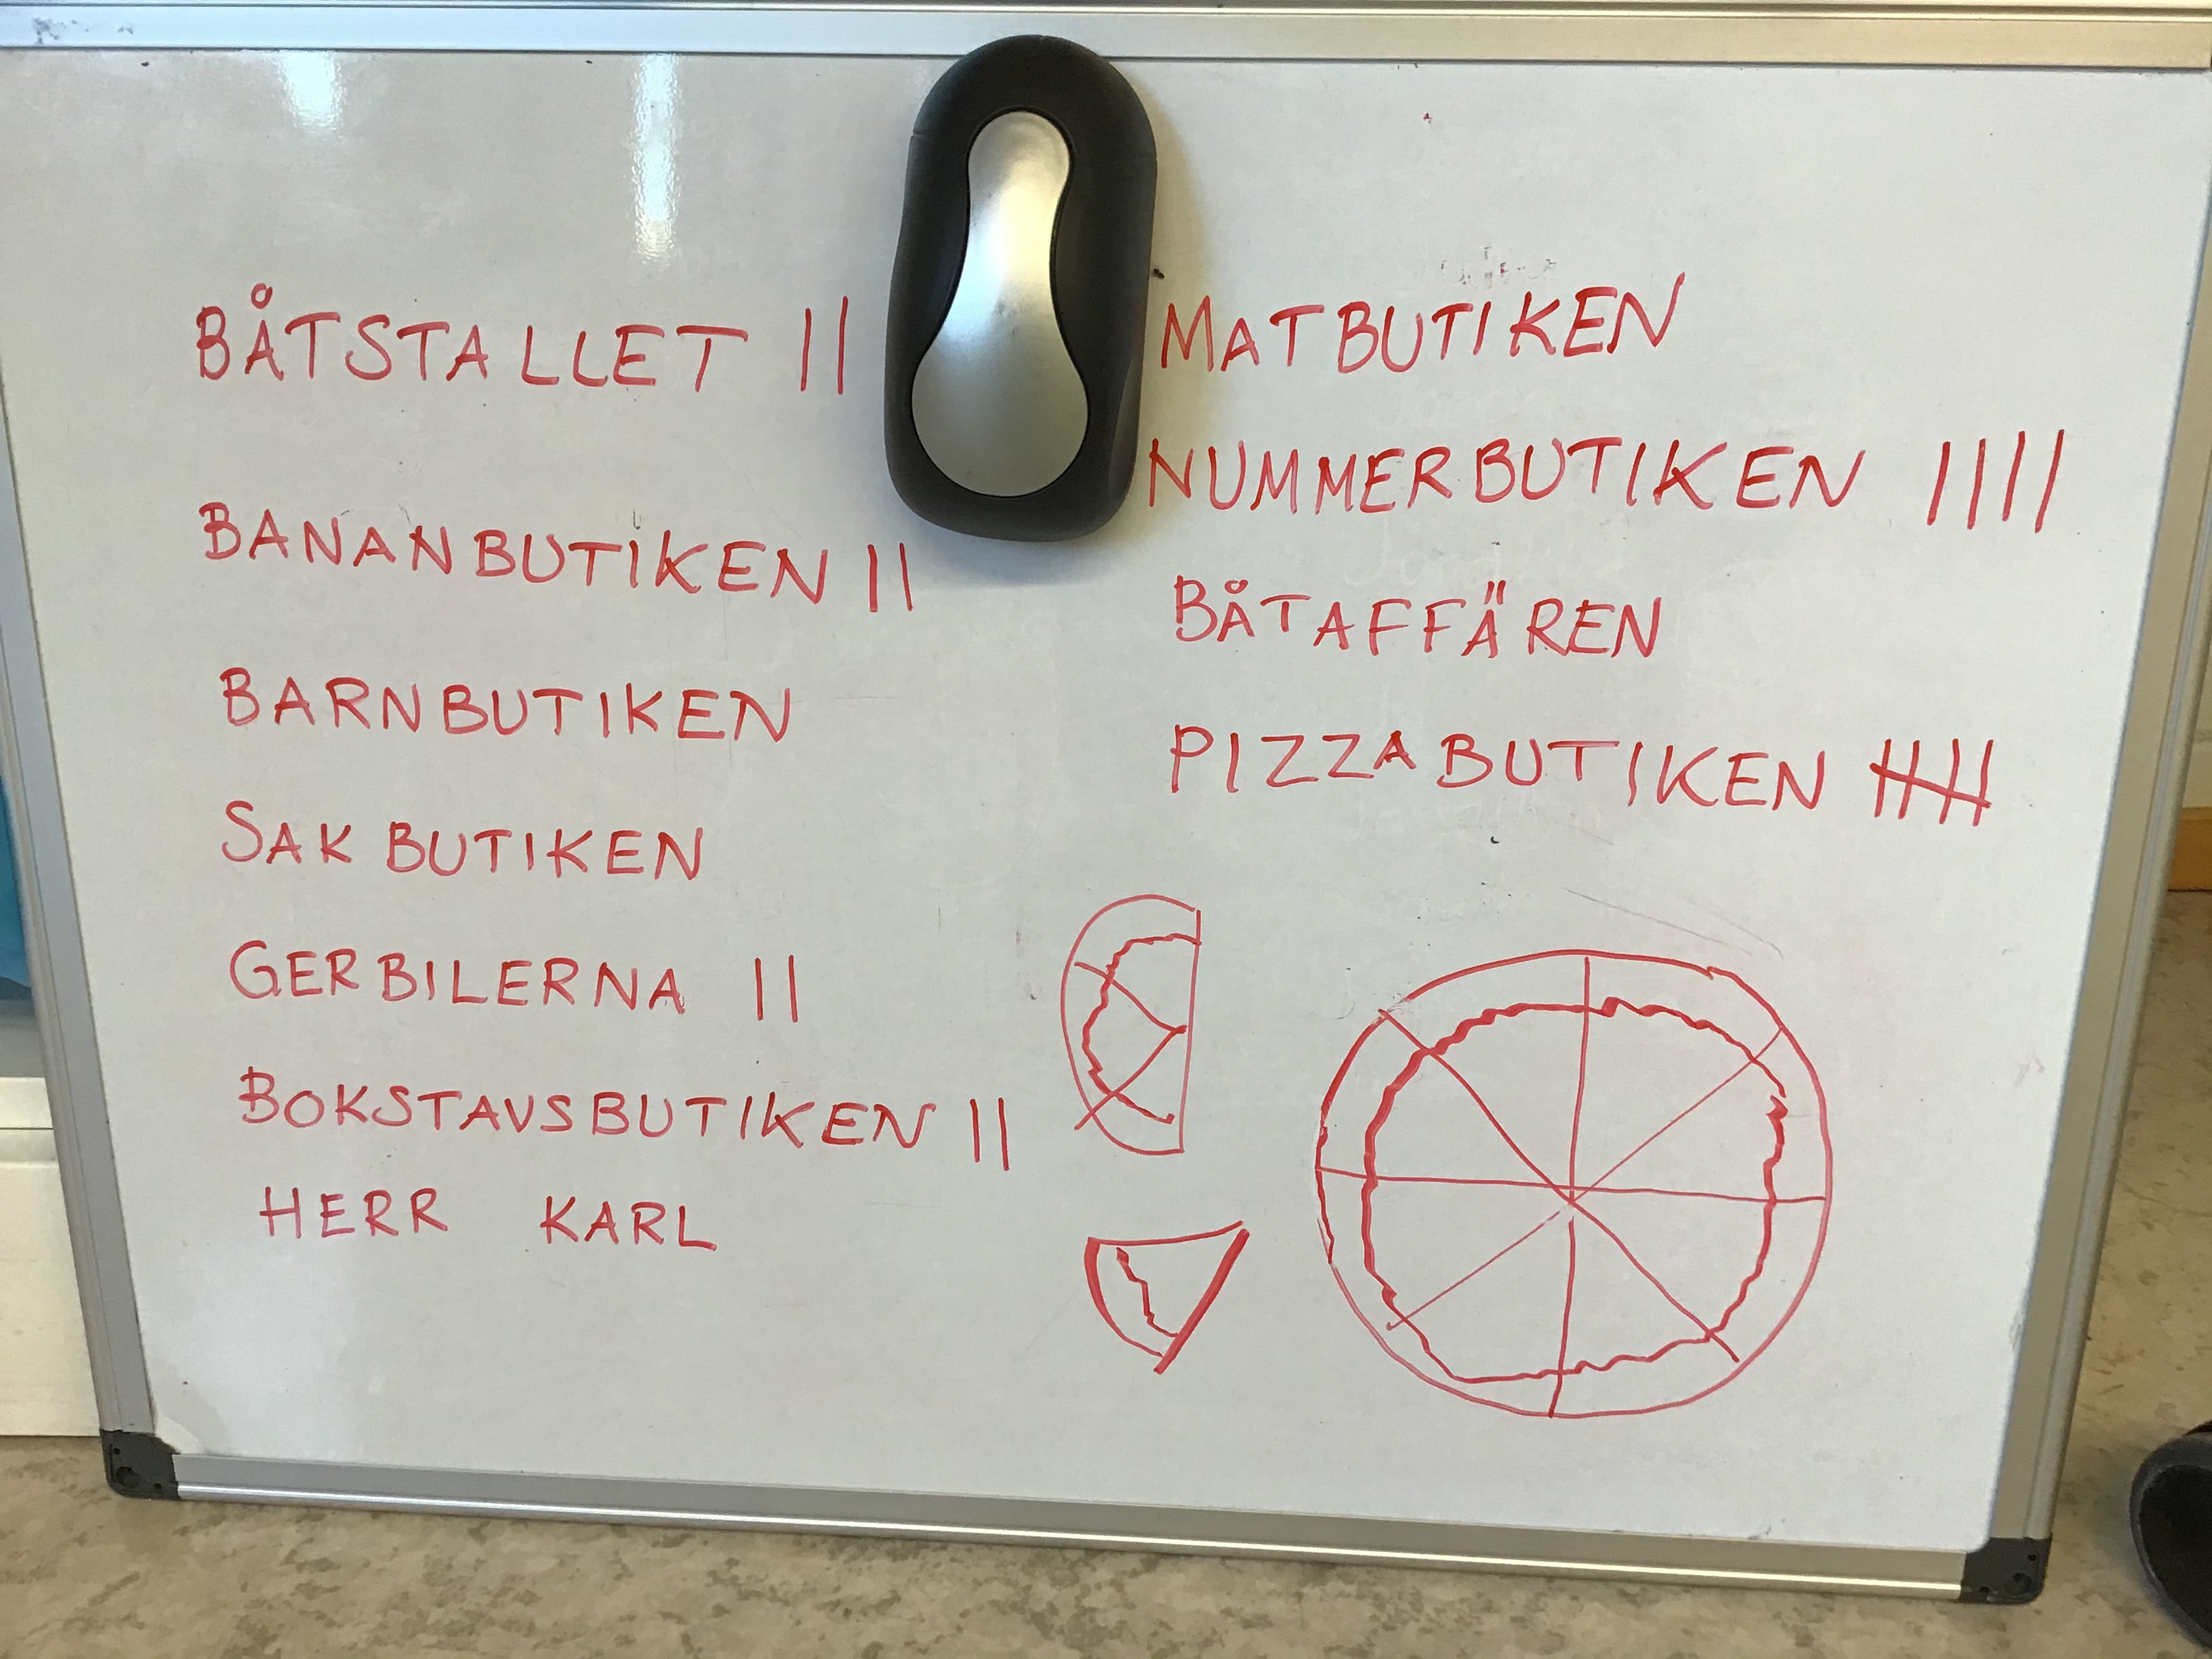 BÅTSTALLET ||
BANANBUTIKEN ||
BARNBUTIKEN
SAK BUTIKEN
GERBILERNA ||
BOKSTAVSBUTIKEN ||
HERR KARL
MATBUTIKEN
NUMMERBUTIKEN ||||
BÅTAFFÄREN
PIZZABUTIKEN ||||